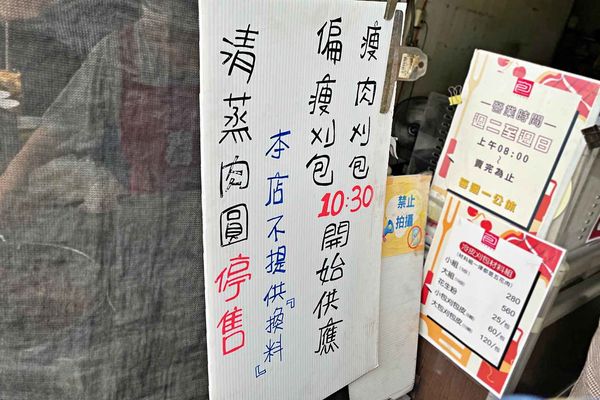 瘦肉刈包
偏瘦刈包
10:30開始供應
本店不提供『換料』
清蒸肉圓停售
禁止
拍攝
營業時間
週二至週日
上午08:00
~
賣完為止
冷皮刈包材料組
小組
280
大組
560
花生粉
25/包
小包刈包皮
60/包
大包刈包皮
120/包